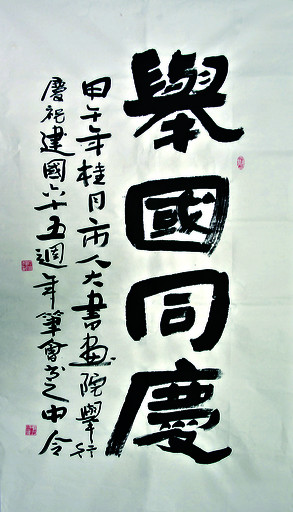 舉國同慶
甲午年桂月市人大書畫院舉行
慶祝建國六十五週年筆會書之中令